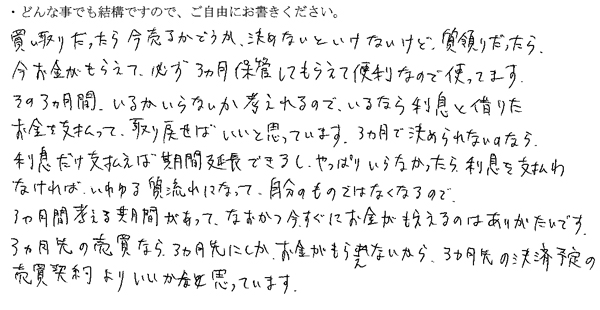 ・どんな事でも結構ですので、ご自由にお書きください。
買い取りだったら今売るかどうか、決めないといけないけど、質預りだったら、
今お金がもらえて、必ず3ヵ月保管してもらえて便利なので使ってます。
その3ヵ月間、いるかいらないか考えれるので、いるなら利息と借りた
お金を支払って、取り戻せばいいと思っています。3ヵ月で決められないのなら、
利息だけ支払えば期間延長できるし、やっぱりいらなかったら、利息を支払わ
なければ、いわゆる質流れになって、自分のものではなくなるので、
3ヵ月間考える期間があって、なおかつ今すぐにお金がもらえるのはありがたいです。
3ヵ月先の売買なら、3ヵ月先にしか、お金がもらえないから、3ヵ月先の決済予定の
売買契約よりいいかなと思っています。